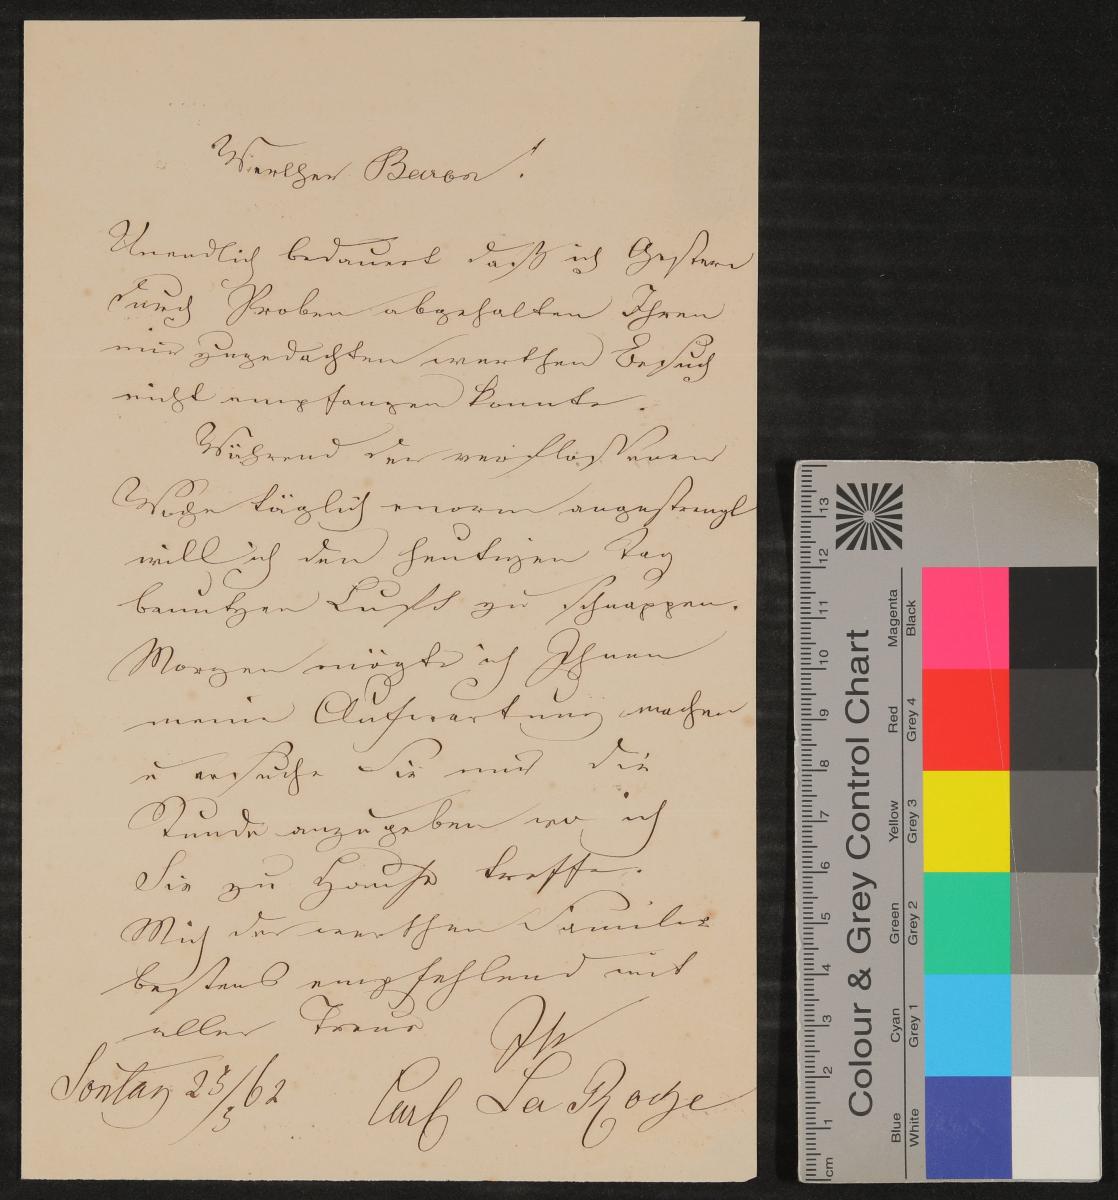 Werther Baron!
Unendlich bedauert daß ich Gestern
durch Proben abgehalten Ihren
mir zugedachten werthen Besuch
nicht empfangen konnte.
Während der verflossenen
Woche täglich enorm angestrengt
will ich den heutigen Tag
benutzen Luft zu schnappen.
Morgen mögte ich Ihnen
meine Aufwartung machen
u ersuche Sie mir die
Stunde anzugeben wo ich
Sie zu Hause treffe.
Mich der werthen Familie
bestens empfehlend mit
aller Treue
Ihr
Sontag 23/3 62
Carl La Roche
Colour & Grey Control Chart
Blue Cyan Green Yellow Red Magenta
White Grey 1 Grey 2 Grey 3 Grey 4 Black
cm 1 2 3 4 5 6 7 8 9 10 11 12 13